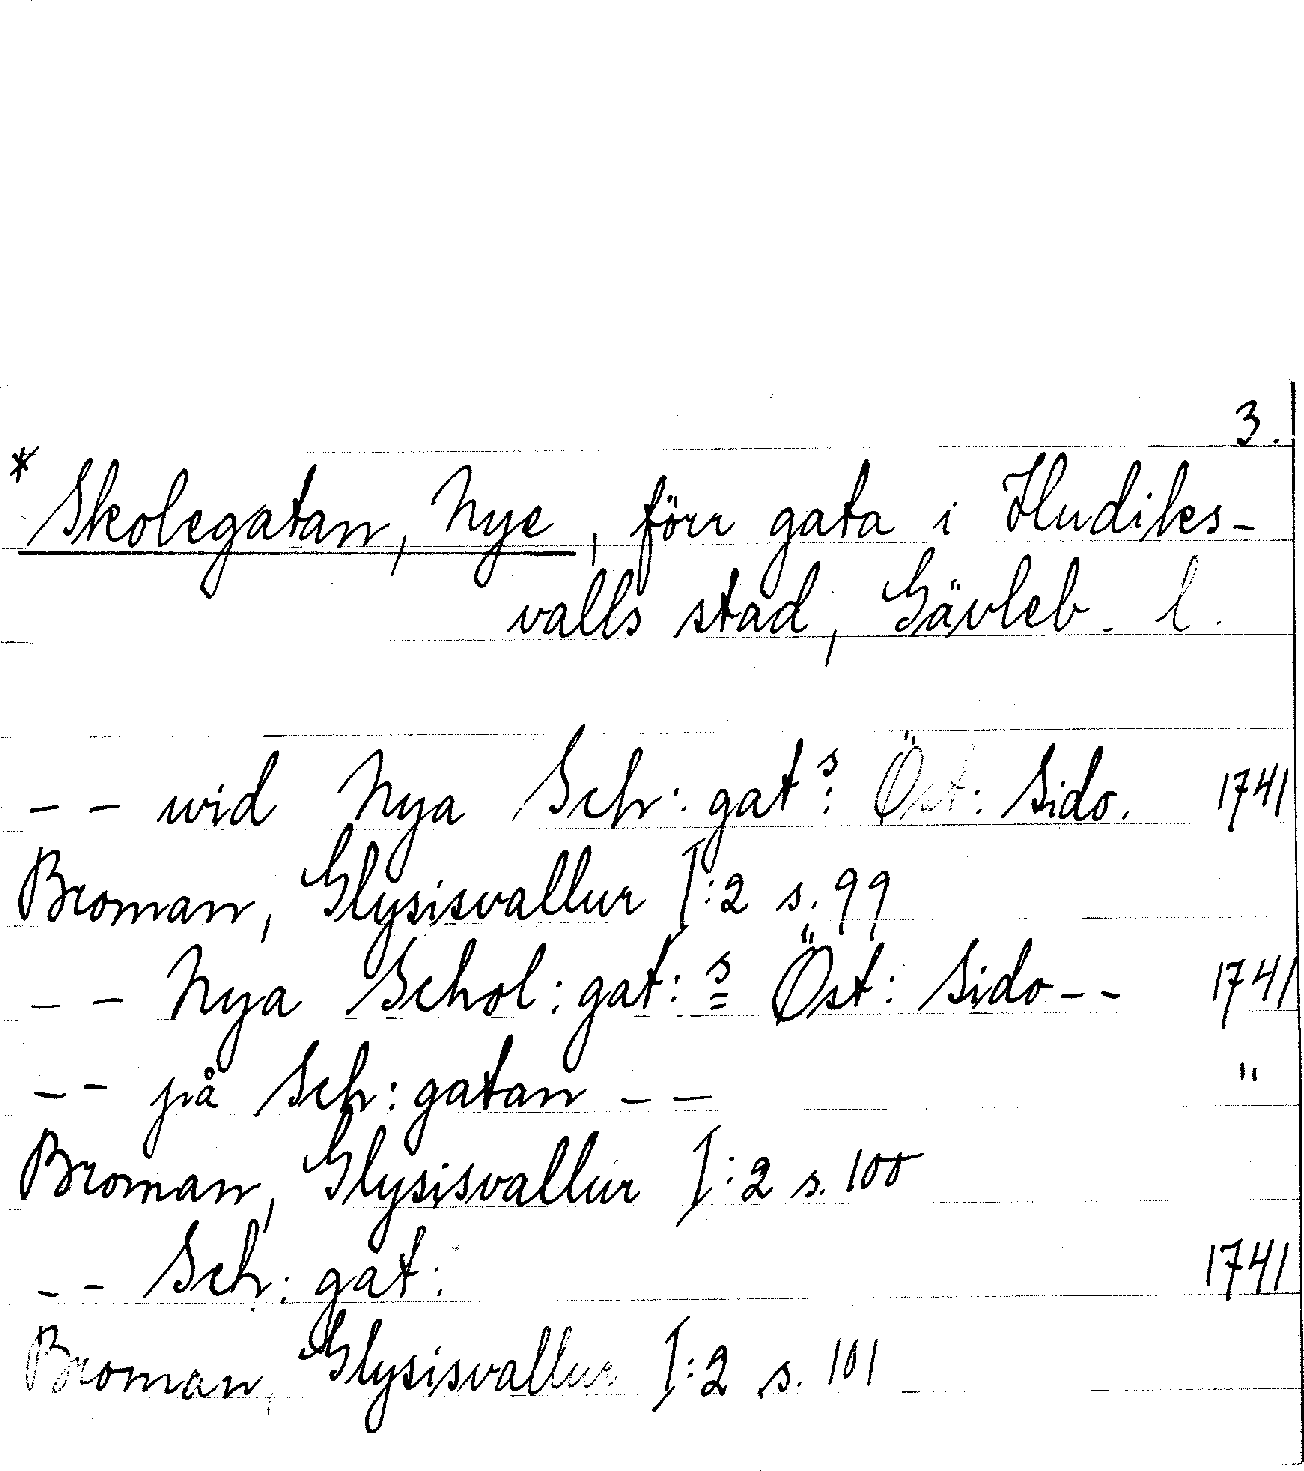 3.
* Skolegatan, Nye, förr gata i Hudiks-
valls stad, Gävleb. l.
-- wid Nya Sch: gat s: Öst: Sido. 1741
Broman, Glysisvallur I:2 s. 99
-- Nya Schol: gat: s Öst: Sido -- 1741
-- på Sch: gatan -- "
Broman, Glysisvallur I:2 s. 100
-- Sch: gat: 1741
Broman, Glysisvallur I:2 s. 101